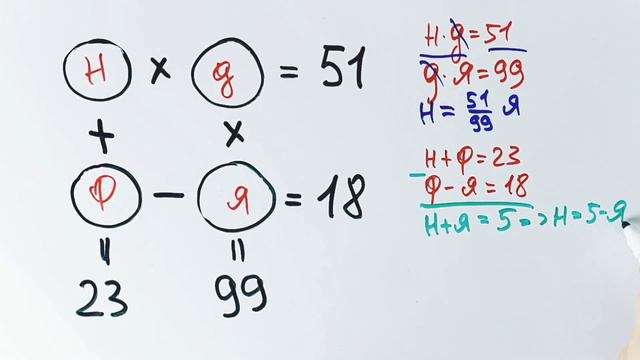 Н × д = 51
+ ×
Ф − Я = 18
= =
23 99
Н · д = 51
д · Я = 99
Н = 51/99 Я
Н + Ф = 23
− Ф − Я = 18
Н + Я = 5 => Н = 5 - Я